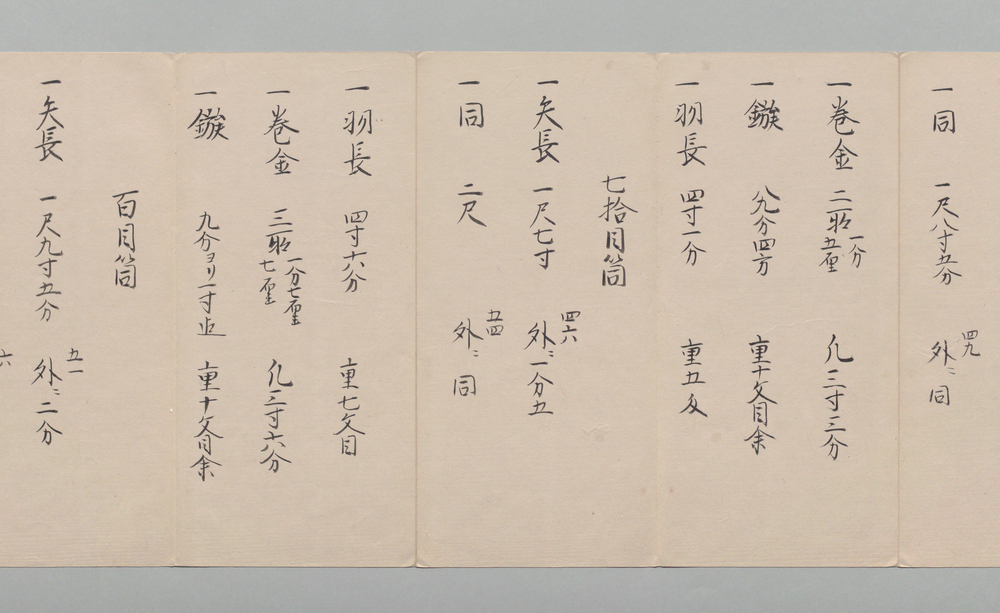 一同 一尺八寸五分 四九 外ニ同
一巻金 二 一分 五厘 凡三寸三分
一鏃 八九分四方 重十文目余
一羽長 四寸一分 重五匁
七拾目筒
一矢長 一尺七寸 四六 外ニ一分五
一同 二尺 五四 外ニ同
一羽長 四寸六分 重七文目
一巻金 三 一分七厘 七厘 凡三寸六分
一鏃 九分ヨリ一寸迄 重十文目余
百目筒
一矢長 一尺九寸五分 五一 外ニ二分
六